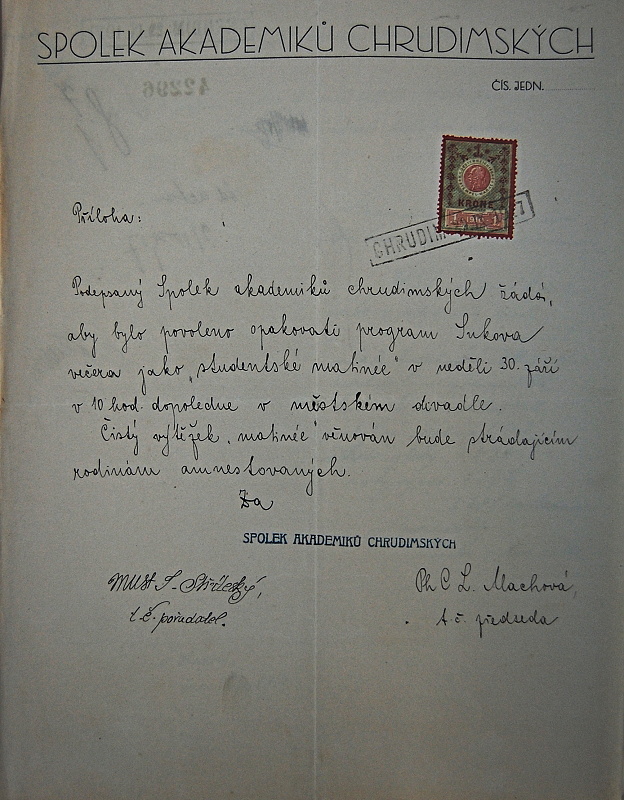 SPOLEK AKADEMIKŮ CHRUDIMSKÝCH
ČÍS. JEDN.
42296
1 KRONE
1 1910 1
CHRUDIM
Příloha:
Podepsaný Spolek akademiků chrudimských žádá,
aby bylo povoleno opakovati program Sukova
večera jako „studentské matinée“ v neděli 30. září
v 10 hod. dopoledne v městském divadle.
Čistý výtěžek „matinée“ věnován bude strádajícím
rodinám amnestovaných.
Za
SPOLEK AKADEMIKŮ CHRUDIMSKÝCH
t. č. pořadatel.
Ph C L. Machová,
t. č. předseda